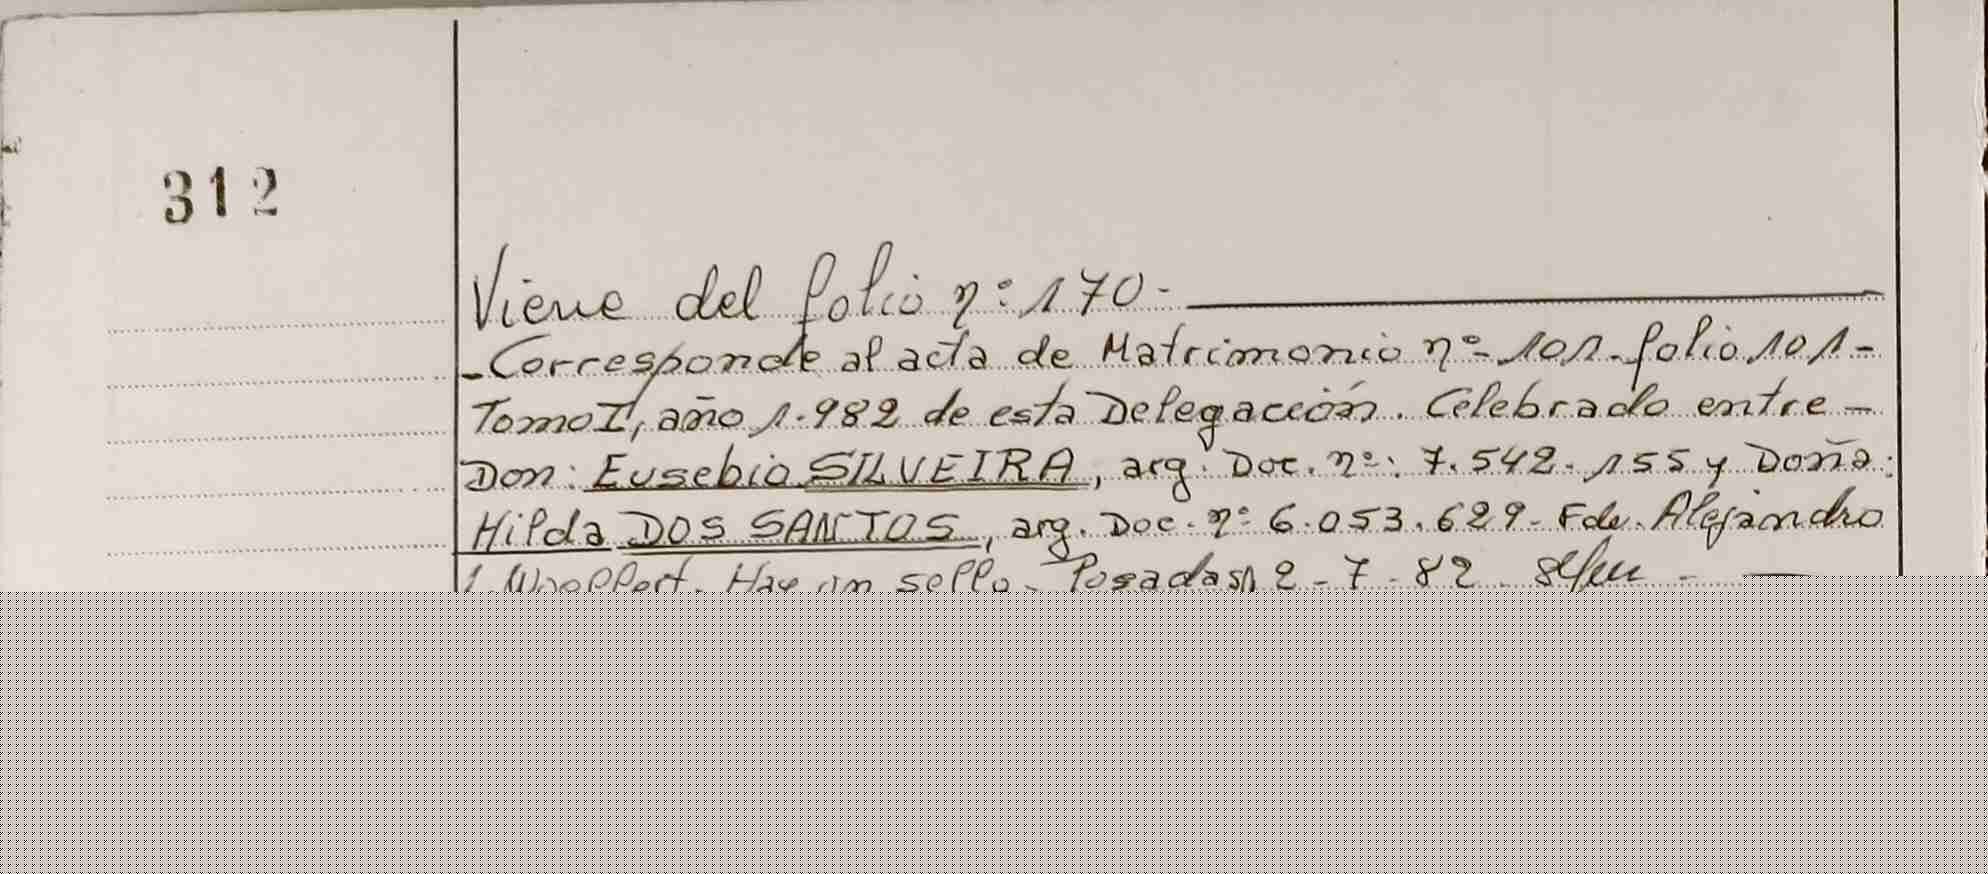 312
Viene del folio nº 170-
-Corresponde al acta de Matrimonio nº 101-folio 101-
Tomo I, año 1.982 de esta Delegación. Celebrado entre-
Don: Eusebio SILVEIRA, arg. Doc. nº: 7.542.155 y Doña:
Hilda DOS SANTOS, arg. Doc. nº 6.053.629- Fdo. Alejandro
Hay un sello. Posadas, 2-7-82.